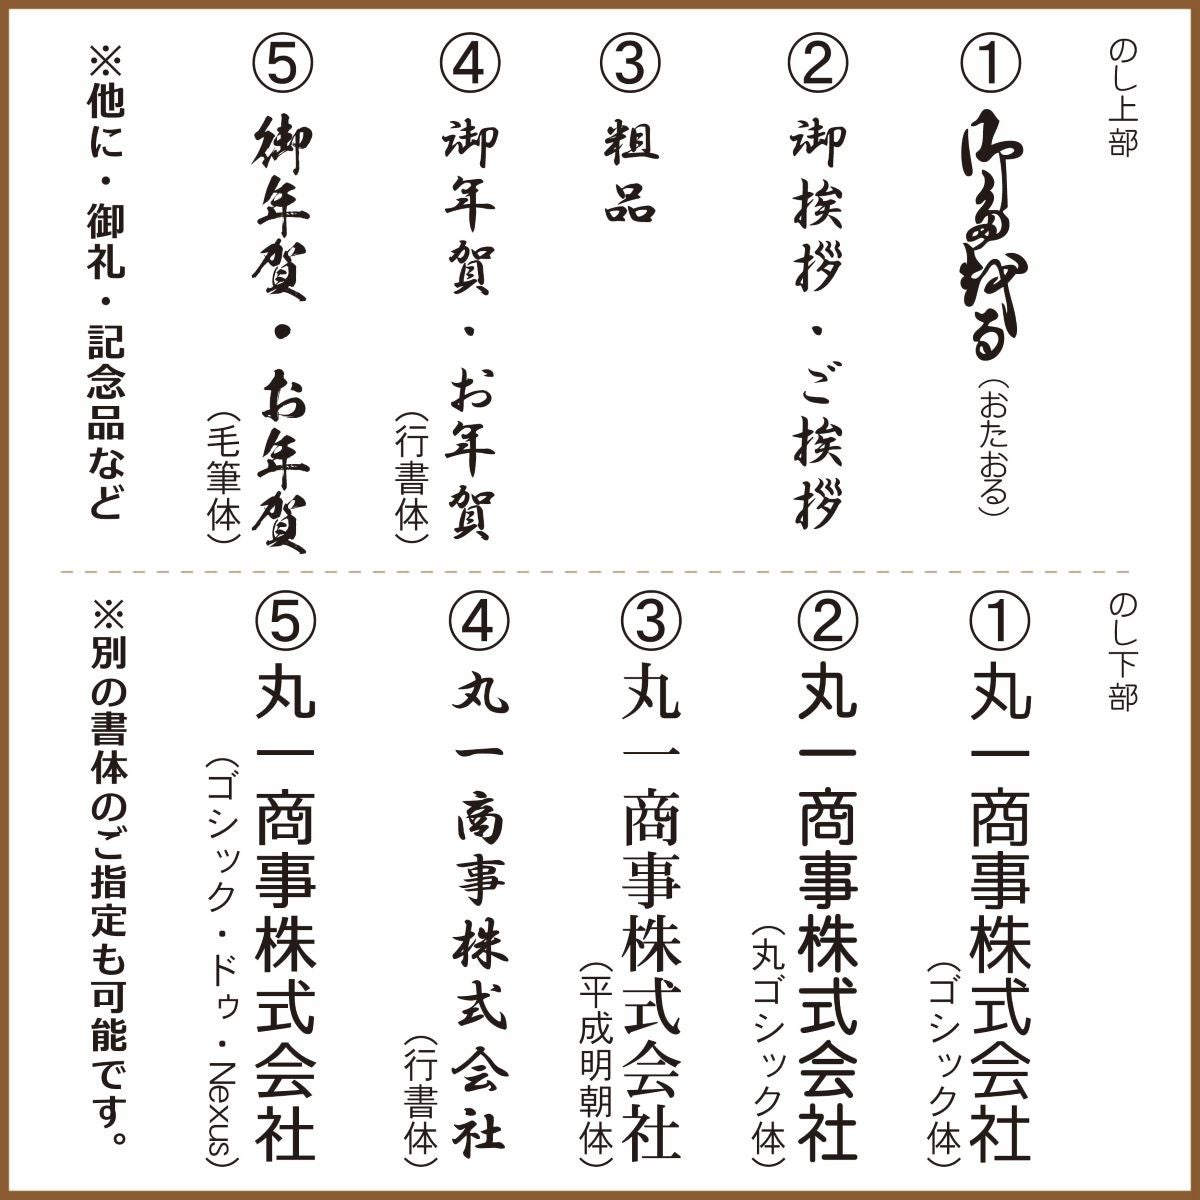 のし上部
①御多越る(おたおる)
②御挨拶・ご挨拶
③粗品
④御年賀・お年賀
(行書体)
⑤御年賀・お年賀
(毛筆体)
※他に・御礼・記念品など
のし下部
①丸一商事株式会社
(ゴシック体)
②丸一商事株式会社
(丸ゴシック体)
③丸一商事株式会社
(平成明朝体)
④丸一商事株式会社
(行書体)
⑤丸一商事株式会社
(ゴシック・ドゥ・Nexus)
※別の書体のご指定も可能です。